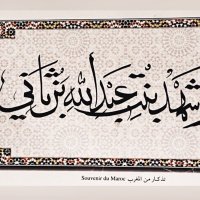 شهد بنت عبد الله
Souvenir du Maroc تذكار من المغرب